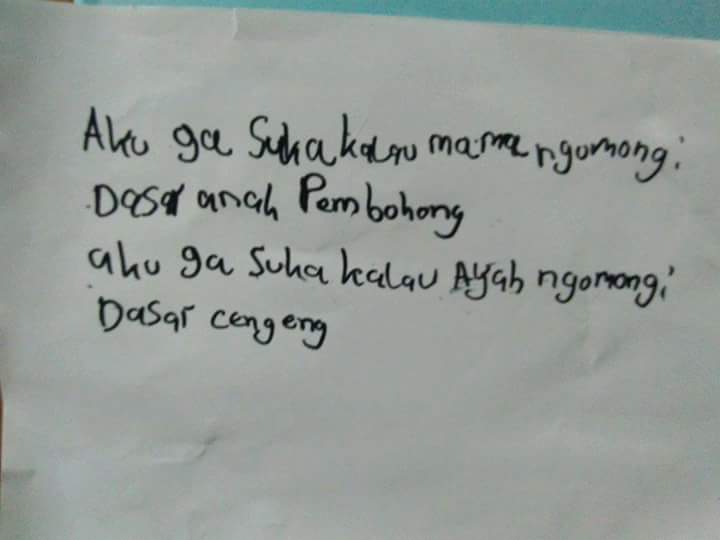 Aku ga suka kalau mama ngomong:
Dasar anak Pembohong
aku ga suka kalau Ayah ngomong:
Dasar cengeng